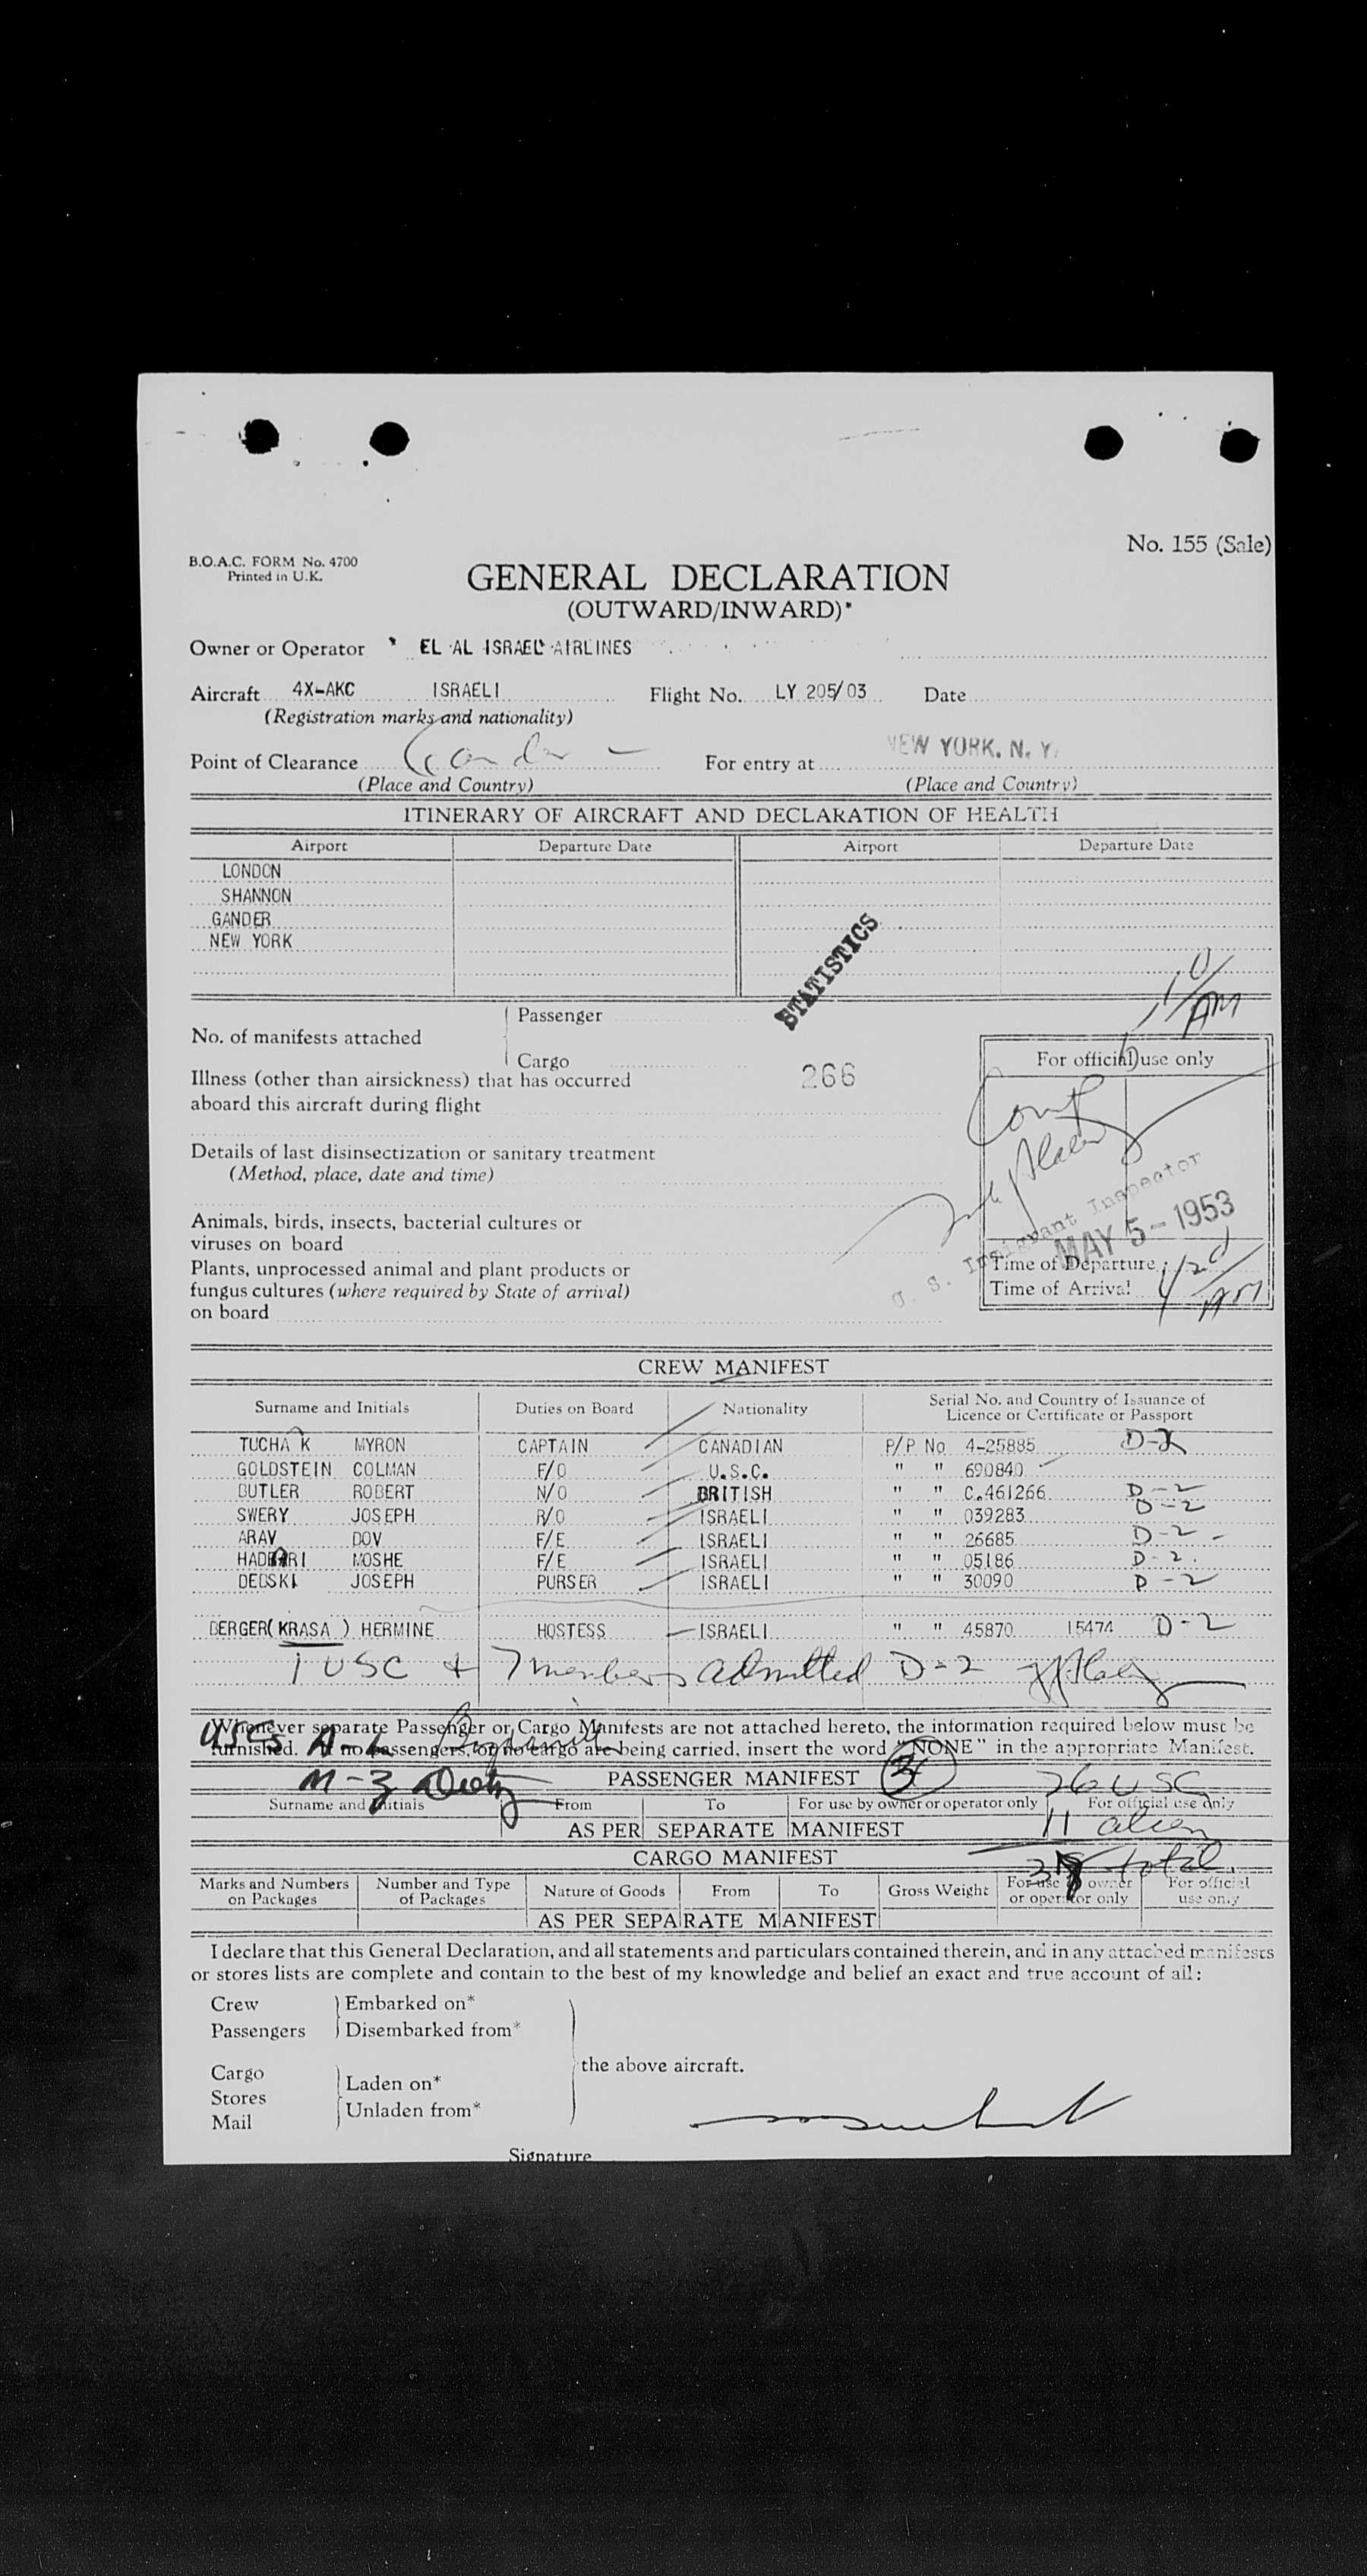 No. 155 (Sale)
B.O.A.C. FORM No. 4700
Printed in U.K.
GENERAL DECLARATION
(OUTWARD/INWARD)*
Owner or Operator EL AL ISRAEL AIRLINES
Aircraft 4X-AKC ISRAELI Flight No. LY 205/03 Date
(Registration marks and nationality)
Point of Clearance Gander For entry at NEW YORK, N. Y.
(Place and Country) (Place and Country)
ITINERARY OF AIRCRAFT AND DECLARATION OF HEALTH
Airport Departure Date Airport Departure Date
LONDON
SHANNON
GANDER
NEW YORK
STATISTICS
AM
No. of manifests attached Passenger
Cargo
266
For official use only
Illness (other than airsickness) that has occurred
aboard this aircraft during flight
Details of last disinsectization or sanitary treatment
(Method, place, date and time)
Animals, birds, insects, bacterial cultures or
viruses on board
Plants, unprocessed animal and plant products or
fungus cultures (where required by State of arrival)
on board
U. S. Immigrant Inspector
MAY 5 - 1953
Time of Departure
Time of Arrival AM
CREW MANIFEST
Surname and Initials Duties on Board Nationality Serial No. and Country of Issuance of Licence or Certificate or Passport
TUCHAK MYRON CAPTAIN CANADIAN P/P No 4-25885 D-2
GOLDSTEIN COLMAN F/O U.S.C. " " 690840
BUTLER ROBERT N/O BRITISH " " C.461266 D-2
SWERY JOSEPH R/O ISRAELI " " 039283 D-2
ARAV DOV F/E ISRAELI " " 26685 D-2
HADARI MOSHE F/E ISRAELI " " 05186 D-2
DEDSKI JOSEPH PURSER ISRAELI " " 30090 D-2
BERGER(KRASA) HERMINE HOSTESS ISRAELI " " 45870 15474 D-2
1 USC & 7 members admitted D-2
Whenever separate Passenger or Cargo Manifests are not attached hereto, the information required below must be
furnished. If no passengers, or no cargo are being carried, insert the word "NONE" in the appropriate Manifest.
USCs A-L
M-Z
PASSENGER MANIFEST 3 26 USC
Surname and Initials From To For use by owner or operator only For official use only
AS PER SEPARATE MANIFEST 11 alien
CARGO MANIFEST total
Marks and Numbers on Packages Number and Type of Packages Nature of Goods From To Gross Weight For use by owner or operator only For official use only
AS PER SEPARATE MANIFEST
I declare that this General Declaration, and all statements and particulars contained therein, and in any attached manifests
or stores lists are complete and contain to the best of my knowledge and belief an exact and true account of all:
Crew Embarked on*
Passengers Disembarked from*
the above aircraft.
Cargo Laden on*
Stores
Mail Unladen from*
Signature